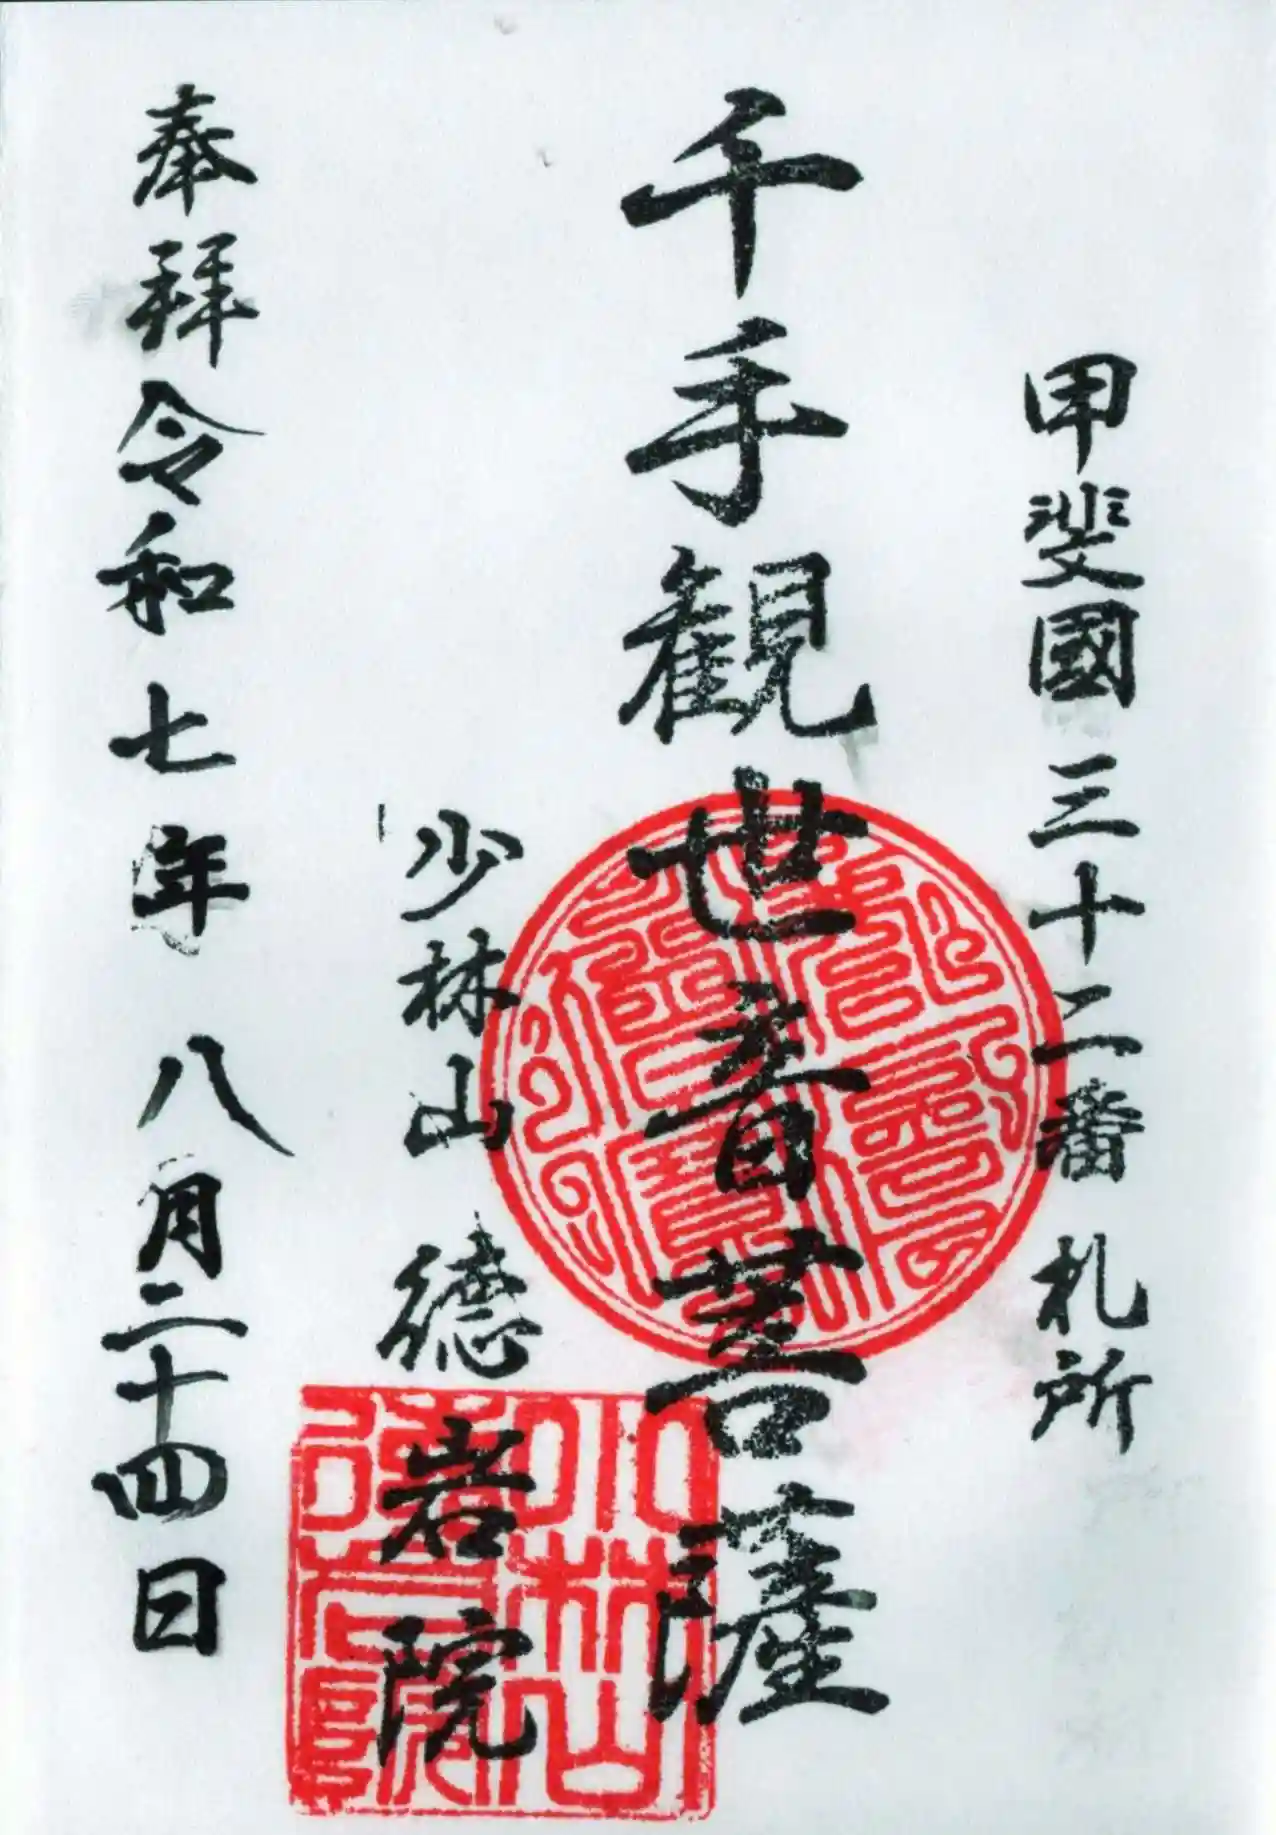 甲斐國三十二番札所
千手観世音菩薩
少林山徳岩院
奉拜令和七年八月二十四日